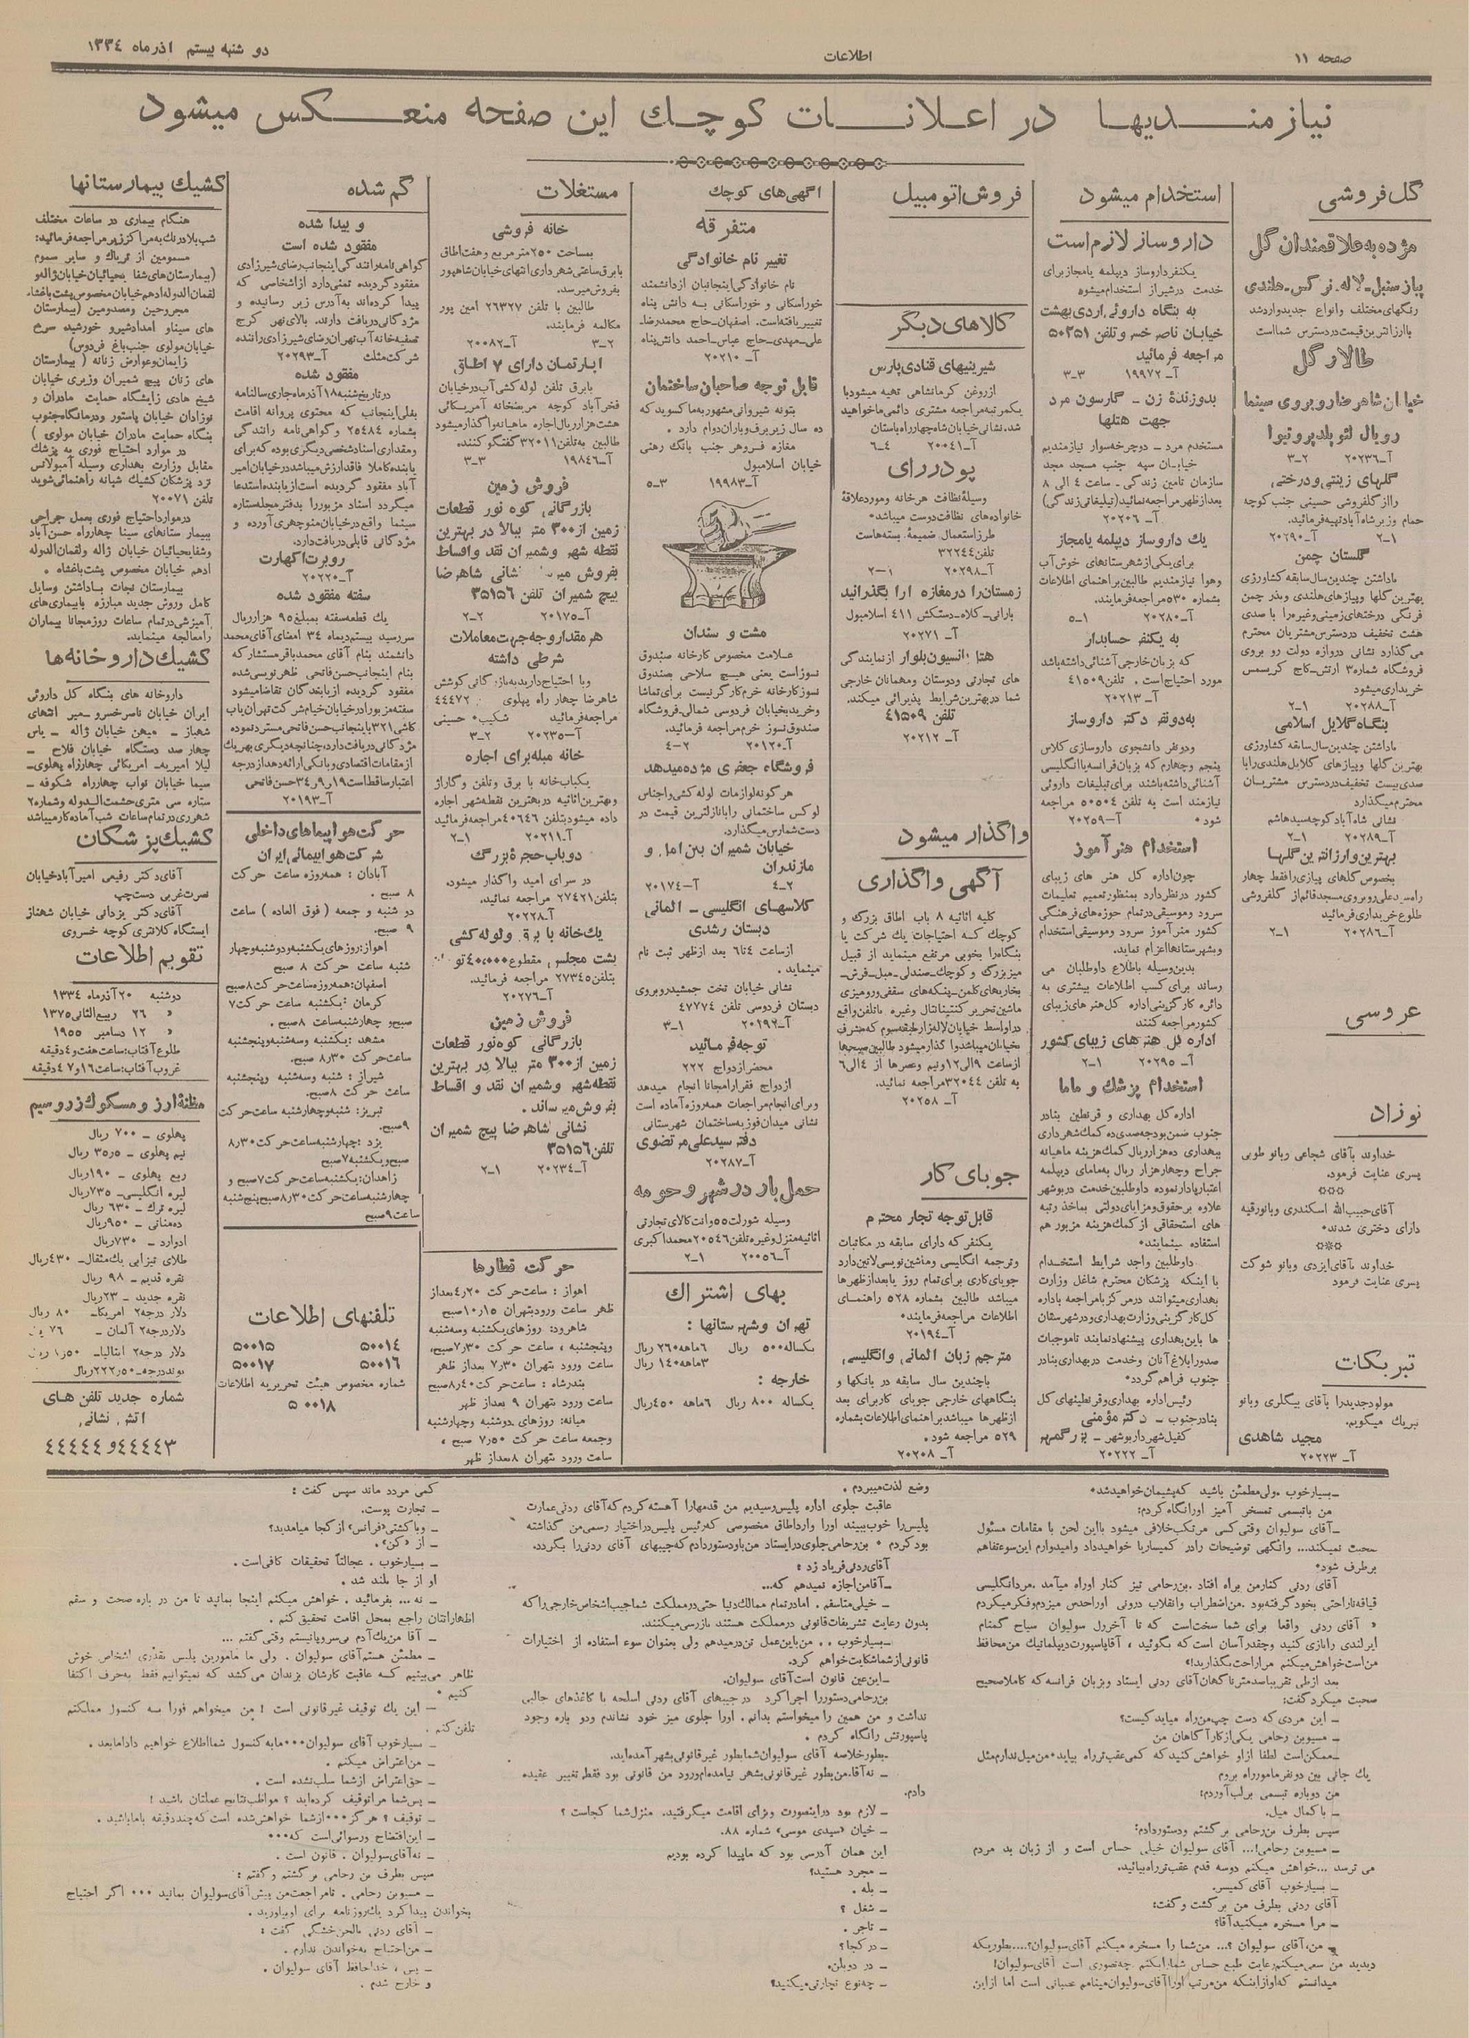 صفحه ۱۱
اطلاعات
دو شنبه بیستم اذرماه ۱۳۳٤
نیازمندیها در اعلانات كوچك این صفحه منعکس میشود
گل فروشی
مژده به علاقمندان گل
پیاز سنبل ـ لاله ـ نرگس ـ هلندی
رنگهای مختلف وانواع جدید وارد شد
با ارزانترین قیمت در دسترس شما است
طالار گل
خیابان شاهرضا روبروی سینما
رویال لئوپلد پرونیوا
آ ـ ۲۰۲۳٦ ۲ـ۳
گلهای زینتی و درختی
را از گلفروشی حسینی جنب کوچه
حمام وزیر شاه آباد تهیه فرمائید.
آ ـ ۲۰۲۹۰ ۱ـ۲
گلستان چمن
با داشتن چندین سال سابقه کشاورزی
بهترین گلها و پیازهای هلندی و بذر چمن
فرنگی درختهای زمینی وغیره با صدی
هشت تخفیف در دسترس مشتریان محترم
می گذارد نشانی دروازه دولت رو بروی
فروشگاه شماره ۳ ارتش ـ کاج کریسمس
خریداری میشود
آ ـ ۲۰۲۸۸ ۱ـ۲
بنگاه گلایل اسلامی
با داشتن چندین سال سابقه کشاورزی
بهترین گلها و پیازهای گلایل هلندی را با
صدی بیست تخفیف در دسترس مشتریان
محترم میگذارد
نشانی شاه آباد کوچه سید هاشم
آ ـ ۲۰۲۸۹ ۱ـ۲
بهترین وارزانترین گلها
بخصوص گلهای پیازی را فقط چهار
راه سید علی روبروی مسجد قائم از گلفروشی
طلوع خریداری فرمائید
آ ـ ۲۰۲۸٦ ۱ـ۲
عروسی
نوزاد
خداوند بآقای شجاعی وبانو طوبی
پسری عنایت فرمود.
آقای حبیب الله اسکندری وبانو رقیه
دارای دختری شدند.
خداوند بآقای ایزدی وبانو شوکت
پسری عنایت فرمود
تبریکات
مولود جدید را بآقای بیگلری وبانو
تبریك میگویم.
مجید شاهدی
آ ـ ۲۰۲۲۳
استخدام میشود
داروساز لازم است
یکنفر داروساز دیپلمه یا مجاز برای
خدمت در شیراز استخدام میشود
به بنگاه داروئی اردیبهشت
خیابان ناصر خسرو تلفن ۵۰۲۵۱
مراجعه فرمائید
آ ـ ۱۹۹۷۲ ۳ـ۳
بدوزنده زن ـ گارسون مرد
جهت هتلها
مستخدم مرد ـ دوچرخه سوار نیازمندیم
خیابان سپه جنب مسجد مجد
سازمان تامین زندگی ـ ساعت ٤ الی ۸
بعد از ظهر مراجعه نمائید (تبلیغاتی زندگی)
آ ـ ۲۰۲۰٦
یك داروساز دیپلمه یا مجاز
برای یکی از شهرستانهای خوش آب
وهوا نیازمندیم طالبین براهنمای اطلاعات
بشماره ۵۳۰ مراجعه فرمایند.
آ ـ ۲۰۲۸۰ ۱ـ۵
به یکنفر حسابدار
که بزبان خارجی آشنائی داشته باشد
مورد احتیاج است. تلفن ٤۱۵۰۹
آ ـ ۲۰۲۱۳
به دو نفر دکتر داروساز
ودو نفر دانشجوی داروسازی کلاس
پنجم و چهارم که بزبان فرانسه یا انگلیسی
آشنائی داشته باشند برای تبلیغات داروئی
نیازمند است به تلفن ۵۰۵۰٤ مراجعه
شود. آ ـ ۲۰۲۵۹
استخدام هنر آموز
چون اداره کل هنر های زیبای
کشور در نظر دارد بمنظور تعمیم تعلیمات
سرود و موسیقی در تمام حوزه های فرهنگی
کشور هنر آموز سرود و موسیقی استخدام
و بشهرستانها اعزام نماید.
بدین وسیله باطلاع داوطلبان می
رساند برای کسب اطلاعات بیشتری به
دائره کارگزینی اداره کل هنر های زیبای
کشور مراجعه کنند
اداره کل هنر های زیبای کشور
آ ـ ۲۰۲۹۵ ۱ـ۲
استخدام پزشك و ماما
اداره کل بهداری و قرنطین بنادر
جنوب ضمن بودجه صدی ده کمك شهرداری
ببهداری ده هزار ریال کمك هزینه ماهیانه
جراح و چهار هزار ریال بمامای دیپلمه
اعتبار پادار نموده داوطلبین خدمت در بوشهر
علاوه بر حقوق و مزایای دولتی بماخذ رتبه
های استحقاقی از کمك هزینه مزبور هم
استفاده مینمایند.
داوطلبین واجد شرایط استخدام
با اینکه پزشکان محترم شاغل وزارت
بهداری میتوانند در مرکز با مراجعه باداره
کل کارگزینی وزارت بهداری و در شهرستان
ها باین بهداری پیشنهاد نمایند تا موجبات
صدور ابلاغ آنان و خدمت در بهداری بنادر
جنوب فراهم گردد.
رئیس اداره بهداری و قرنطینهای کل
بنادر جنوب ـ دکتر مؤمنی
کفیل شهردار بوشهر ـ بزرگمهر
آ ـ ۲۰۲۲۲
فروش اتومبیل
کالاهای دیگر
شیرینیهای قنادی پارس
از روغن کرمانشاهی تهیه میشود با
یکمرتبه مراجعه مشتری دائمی ما خواهید
شد. نشانی خیابان شاه چهار راه باستان
آ ـ ۲۰۰٤۱ ٤ـ٦
پودر رای
وسیله نظافت هر خانه و مورد علاقه
خانواده های نظافت دوست میباشد.
طرز استعمال ضمیمه بسته هاست
تلفن ۳۲۲٤٤
آ ـ ۲۰۲۹۸ ۱ـ۲
زمستان را در مغازه ارا بگذرانید
بارانی ـ کلاه ـ دستکش ٤۱۱ اسلامبول
آ ـ ۲۰۲۷۱
هتل پانسیون بلوار از نمایندگی
های تجارتی و دوستان و مهمانان خارجی
شما در بهترین شرایط پذیرائی میکند.
تلفن ٤۱۵۰۹
آ ـ ۲۰۲۱۲
واگذار میشود
آگهی واگذاری
کلیه اثاثیه ۸ باب اطاق بزرگ و
کوچك که احتیاجات یك شرکت یا
بنگاه را بخوبی مرتفع مینماید از قبیل
میز بزرگ و کوچك ـ صندلی ـ مبل ـ فرش ـ
بخاریهای کلمن ـ پنکه های سقفی و رومیزی
ماشین تحریر کنتیننتال وغیره با تلفن واقع
در اواسط خیابان لاله زار طبقه سوم که مشرف
بخیابان میباشد واگذار میشود طالبین صبحها
از ساعت ۹ الی ۱۲ ونیم و عصرها از ٤ الی ٦
به تلفن ۳۲۰٤٤ مراجعه نمائید.
آ ـ ۲۰۲۵۸
جویای کار
قابل توجه تجار محترم
یکنفر که دارای سابقه در مکاتبات
وترجمه انگلیسی و ماشین نویسی لاتین دارد
جویای کاری برای تمام روز یا بعد از ظهرها
میباشد طالبین بشماره ۵۲۸ راهنمای
اطلاعات مراجعه فرمایند.
آ ـ ۲۰۱۹٤
مترجم زبان المانی وانگلیسی
با چندین سال سابقه در بانکها و
بنگاههای خارجی جویای کار برای بعد
از ظهر ها میباشد براهنمای اطلاعات بشماره
۵۲۹ مراجعه شود.
آ ـ ۲۰۲۰۸
اگهی های کوچك
متفرقه
تغییر نام خانوادگی
نام خانوادگی اینجانبان از دانشمند
خوراسکانی و خوراسکانی به دانش پناه
تغییر یافته است. اصفهان ـ حاج محمدرضا ـ
علی ـ مهدی ـ حاج عباس ـ احمد دانش پناه
آ ـ ۲۰۲۱۰
قابل توجه صاحبان ساختمان
بتونه شیروانی مشهور به ماکسوید که
ده سال زیر برف و باران دوام دارد.
مغازه فروهر جنب بانك رهنی
خیابان اسلامبول
آ ـ ۱۹۹۸۳ ۳ـ۵
مشت و سندان
علامت مخصوص کارخانه صندوق
نسوز است یعنی هیچ سلاحی بصندوق
نسوز کارخانه خرم کارگر نیست برای تماشا
و خرید بخیابان فردوسی شمالی ـ فروشگاه
صندوق نسوز خرم مراجعه فرمائید.
آ ـ ۲۰۱۲۰ ۲ـ٤
فروشگاه جعفری مژده میدهد
هر گونه لوازمات لوله کشی و اجناس
لوکس ساختمانی را با نازلترین قیمت در
دسترس شما میگذارد.
خیابان شمیران بین امل و
مازندران
آ ـ ۲۰۱۷٤ ۲ـ٤
کلاسهای انگلیسی ـ المانی
دبستان رشدی
از ساعت ٤ تا ٦ بعد از ظهر ثبت نام
مینماید.
نشانی خیابان تخت جمشید روبروی
دبستان فردوسی تلفن ٤۷۷۷٤
آ ـ ۲۰۱۹۲ ۱ـ۳
توجه فرمائید
محضر ازدواج ۲۲۲
ازدواج فقرا را مجانا انجام میدهد
وبرای انجام مراجعات همه روزه آماده است
نشانی میدان فوزیه ساختمان شهرستانی
دفتر سید علی مرتضوی
آ ـ ۲۰۲۸۷
حمل بار در شهر و حومه
وسیله شورلت ۵۵ وانت کالای تجارتی
اثاثیه منزل و غیره تلفن ۲۰۵٤٦ محمد اکبری
آ ـ ۲۰۰۵٦ ۱ـ۲
بهای اشتراك
تهران وشهرستانها :
یکساله ۵۰۰ ریال ٦ ماهه ۲٦۰ ریال
۳ ماهه ۱٤۰ ریال
خارجه :
یکساله ۸۰۰ ریال ٦ ماهه ٤۵۰ ریال
مستغلات
خانه فروشی
بمساحت ۲۵۰ متر مربع و هفت اطاق
با برق ساعتی شهرداری انتهای خیابان شاهپور
بفروش میرسد.
طالبین با تلفن ۲٦۳۲۷ امین پور
مکالمه فرمایند.
آ ـ ۲۰۰۸۲ ۲ـ۳
اپارتمان دارای ۷ اطاق
با برق تلفن لوله کشی آب در خیابان
فخر آباد کوچه مریضخانه آمریکائی
هشت هزار ریال اجاره ماهیانه واگذار میشود
طالبین به تلفن ۳۲۰۱۱ گفتگو کنند.
آ ـ ۱۹۸٤٦ ۳ـ۳
فروش زمین
بازرگانی کوه نور قطعات
زمین از ۳۰۰ متر ببالا در بهترین
نقطه شهر وشمیران نقد واقساط
بفروش نشانی شاهرضا
پیچ شمیران تلفن ۳۵۱۵٦
آ ـ ۲۰۱۷۵ ۲ـ۲
هر مقدار وجه جهت معاملات
شرطی داشته
ویا احتیاج دارید به بازرگانی کوشش
شاهرضا چهار راه پهلوی ٤٤٤۷۲
مراجعه فرمائید شکیب ـ حسینی
آ ـ ۲۰۲۳۵ ۲ـ۳
خانه مبله برای اجاره
یکباب خانه با برق و تلفن و گاراژ
و بهترین اثاثیه در بهترین نقطه شهر اجاره
داده میشود بتلفن ٤۰٦٤٦ مراجعه فرمائید
آ ـ ۲۰۲۱۱ ۱ـ۲
دو باب حجره بزرگ
در سرای امید واگذار میشود.
بتلفن ۲۷٤۲۱ مراجعه نمائید.
آ ـ ۲۰۲۲۸
یك خانه با برق و لوله کشی
پشت مجلس مقطوع ٤۰٫۰۰۰
بتلفن ۲۷۳٤۵ مراجعه فرمائید.
آ ـ ۲۰۲۷٦
فروش زمین
بازرگانی کوه نور قطعات
زمین از ۳۰۰ متر ببالا در بهترین
نقطه شهر و شمیران نقد و اقساط
بفروش میرساند.
نشانی شاهرضا پیچ شمیران
تلفن ۳۵۱۵٦
آ ـ ۲۰۲۳٤ ۱ـ۲
حرکت قطارها
اهواز : ساعت حرکت ٤٫۲۰ بعد از
ظهر ساعت ورود بتهران ۱۰٫۱۵ صبح
شاهرود: روزهای یکشنبه وسه شنبه
وپنجشنبه ، ساعت حرکت ۷٫۳۰ صبح،
ساعت ورود بتهران ۷٫۳۰ بعد از ظهر
بندرشاه : ساعت حرکت ۸٫٤۰ صبح
ساعت ورود بتهران ۹ بعد از ظهر
میانه: روزهای دوشنبه و چهارشنبه
وجمعه ساعت حرکت ۷٫۵۰ صبح ،
ساعت ورود بتهران ۸ بعد از ظهر
گم شده
و پیدا شده
مفقود شده است
گواهی نامه رانندگی اینجانب رضای شیرزادی
مفقود گردیده تمنی دارد از اشخاصی که
پیدا کرده اند به آدرس زیر رسانیده و
مژدگانی دریافت دارند. بالای نهر کرج
تصفیه خانه آب تهران رضای شیرزادی راننده
شرکت مثلث آ ـ ۲۰۲۹۳
مفقود شده
در تاریخ شنبه ۱۸ آذر ماه جاری سالنامه
بغلی اینجانب که محتوی پروانه اقامت
بشماره ۲۵٤۸٤ و گواهی نامه رانندگی
ومقداری اسناد شخصی دیگری بوده که برای
یابنده کاملا فاقد ارزش میباشد در خیابان امیر
آباد مفقود گردیده است از یابنده استدعا
میگردد اسناد مزبور را بدفتر مجله ستاره
سینما واقع در خیابان منوچهری آورده و
مژدگانی قابلی دریافت دارد.
روبرت اکهارت
آ ـ ۲۰۲۲۰
سفته مفقود شده
یك قطعه سفته بمبلغ ۹۵ هزار ریال
سررسید بیستم دیماه ۳٤ امضای آقای محمد
دانشمند بنام آقای محمد باقر مستشار که
بنام اینجانب حسن فاتحی ظهر نویسی شده
مفقود گردیده از یابندگان تقاضا میشود
سفته مزبور را در خیابان خیام شرکت تهران باب
کاشی ۳۲۱ باینجانب حسن فاتحی مسترد نموده
مژدگانی دریافت دارد، چنانچه دیگری بهر یك
از مقامات اقتصادی و بانکی ارائه دهد از درجه
اعتبار ساقط است ۱۹ ر ۹ ر ۳٤ حسن فاتحی
آ ـ ۲۰۱۹۳
حرکت هواپیماهای داخلی
شرکت هواپیمائی ایران
آبادان : همه روزه ساعت حرکت
۸ صبح .
دو شنبه و جمعه ( فوق العاده ) ساعت
۹ صبح.
اهواز: روزهای یکشنبه ودوشنبه وچهار
شنبه ساعت حرکت ۸ صبح
اصفهان: همه روزه ساعت حرکت ۸ صبح
کرمان : یکشنبه ساعت حرکت ۷
صبح و چهارشنبه ساعت ۸ صبح.
مشهد : یکشنبه وسه شنبه و پنجشنبه
ساعت حرکت ۸٫۳۰ صبح.
شیراز : شنبه وسه شنبه وپنجشنبه
ساعت حرکت ۸ صبح.
تبریز: شنبه و چهارشنبه ساعت حرکت
۹ صبح.
یزد : چهارشنبه ساعت حرکت ۸٫۳۰
صبح و یکشنبه ۷ صبح
زاهدان: یکشنبه ساعت حرکت ۷ صبح و
چهارشنبه ساعت حرکت ۸٫۳۰ صبح پنج شنبه
ساعت ۹ صبح
تلفنهای اطلاعات
۵۰۰۱٤ ۵۰۰۱۵
۵۰۰۱٦ ۵۰۰۱۷
شماره مخصوص هیئت تحریریه اطلاعات
۵۰۰۱۸
کشیك بیمارستانها
هنگام بیماری در ساعات مختلف
شب بلادرنك به مراکز زیر مراجعه فرمائید:
مسمومین از تریاك و سایر سموم
(بیمارستان های شفا یحیائیان خیابان ژاله و
لقمان الدوله ادهم خیابان مخصوص پشت باغشاه
مجروحین و مصدومین (بیمارستان
های سینا و امداد شیر و خورشید سرخ
خیابان مولوی جنب باغ فردوس)
زایمان وعوارض زنانه ( بیمارستان
های زنان پیچ شمیران وزیری خیابان
شیخ هادی زایشگاه حمایت مادران و
نوزادان خیابان پاستور و درمانگاه جنوب
بنگاه حمایت مادران خیابان مولوی )
در موارد احتیاج فوری به پزشك
مقابل وزارت بهداری وسیله آمبولانس
نزد پزشکان کشیك شبانه راهنمائی شوید
تلفن ۲۰۰۷۱
در موارد احتیاج فوری بعمل جراحی
ببیمارستانهای سینا چهار راه حسن آباد
و شفا یحیائیان خیابان ژاله و لقمان الدوله
ادهم خیابان مخصوص پشت باغشاه .
بیمارستان نجات با داشتن وسایل
کامل وروش جدید مبارزه با بیماری های
آمیزشی در تمام ساعات روز مجانا بیماران
را معالجه مینماید.
کشیك داروخانه ها
داروخانه های بنگاه کل داروئی
ایران خیابان ناصر خسرو ـ میر اشهای
شهباز ـ میهن خیابان ژاله ـ یاس
چهار صد دستگاه خیابان فلاح ـ
لیلا امیریه ـ امریکائی چهارراه پهلوی ـ
سیما خیابان نواب چهارراه شکوفه ـ
ستاره سی متری حشمت الدوله و شماره ۲
شهرری در تمام ساعات شب آماده کار میباشد
کشیك پزشکان
آقای دکتر رفیعی امیر آباد خیابان
نصرت غربی دست چپ
آقای دکتر یزدانی خیابان شهناز
ایستگاه کلانتری کوچه خسروی
تقویم اطلاعات
دوشنبه ۲۰ آذرماه ۱۳۳٤
« ۲٦ ربیع الثانی ۱۳۷۵
« ۱۲ دسامبر ۱۹۵۵
طلوع آفتاب: ساعت هفت و ٤ دقیقه
غروب آفتاب: ساعت ۱٦ و ٤۷ دقیقه
مظنه ارز و مسکوك زر و سیم
پهلوی ـ ۷۰۰ ریال
نیم پهلوی ـ ۳۵٫۵ ریال
ربع پهلوی ـ ۱۹۰ ریال
لیره انگلیسی ـ ۷۳۵ ریال
لیره ترك ـ ٦۳۰ ریال
ده مناتی ـ ۹۵۰ ریال
ادوارد ـ ۷۳۰ ریال
طلای تیزابی یك مثقال ـ ٤۳۰ ریال
نقره قدیم ـ ۹۸ ریال
نقره جدید ـ ۲۳ ریال
دلار درجه ۲ امریکا ـ ۸۰ ریال
دلار درجه ۲ آلمان ـ ۷٦
دلار درجه ۲ ایتالیا ـ
پوند درجه ـ ۲۲۲٫۵۰ ریال
شماره جدید تلفن های
اتش نشانی
٤٤٤٤۳ و ٤٤٤٤٤
ـ بسیار خوب ـ ولی مطمئن باشید که پشیمان خواهید شد.
من با تبسمی تمسخر آمیز اورا نگاه کردم:
ـ آقای سولیوان وقتی کسی مرتکب خلافی میشود با این لحن با مقامات مسئول
صحبت نمیکند... وانگهی توضیحات را در کمیساریا خواهید داد و امیدوارم این سوء تفاهم
برطرف شود.
آقای ردنی کنار من براه افتاد . بن رحامی نیز کنار او راه میآمد . مرد انگلیسی
قیافه ناراحتی بخود گرفته بود . من اضطراب و انقلاب درونی اورا حدس میزدم و فکر میکردم
« آقای ردنی واقعا برای شما سخت است که تا آخر رل سولیوان سیاح گمنام
ایرلندی را بازی کنید و چقدر آسان است که بگوئید ، آقا پاسپورت دیپلماتیك من محافظ
من است خواهش میکنم مرا راحت بگذارید!»
بعد از طی تقریبا صد متر ناگهان آقای ردنی ایستاد و بزبان فرانسه که کاملا صحیح
صحبت میکرد گفت:
ـ این مردی که دست چپ من راه میاید کیست؟
ـ مسیو بن رحامی یکی از کار آگاهان من
ـ ممکن است لطفا از او خواهش کنید که کمی عقب تر راه بیاید . من میل ندارم مثل
یك جانی بین دو نفر مامور راه بروم
من دوباره تبسمی بر لب آوردم:
ـ با کمال میل.
سپس بطرف بن رحامی برگشتم و دستور دادم:
ـ مسیو بن رحامی!... آقای سولیوان خیلی حساس است و از زبان بد مردم
می ترسد ... خواهش میکنم دو سه قدم عقب تر راه بیائید.
ـ بسیار خوب آقای کمیسر.
آقای ردنی بطرف من برگشت و گفت:
ـ مرا مسخره میکنید آقا؟
ـ من، آقای سولیوان ؟... من شما را مسخره میکنم آقای سولیوان؟....بطوریکه
دیدید من سعی میکنم رعایت طبع حساس شما را بکنم. چه تصوری است آقای سولیوان!
میدانستم که او از اینکه من مرتب اورا آقای سولیوان مینامم عصبانی است اما از این
وضع لذت میبردم .
عاقبت جلوی اداره پلیس رسیدیم من قدمها را آهسته کردم که آقای ردنی عمارت
پلیس را خوب ببیند اورا وارد اطاق مخصوصی که رئیس پلیس در اختیار رسمی من گذاشته
بود کردم . بن رحامی جلوی در ایستاد من باو دستور دادم که جیبهای آقای ردنی را بگردد.
آقای ردنی فریاد زد :
ـ آقا من اجازه نمیدهم که...
ـ خیلی متاسفم . اما در تمام ممالك دنیا حتی در مملکت شما جیب اشخاص خارجی را که
بدون رعایت تشریفات قانونی در مملکت هستند بازرسی میکنند.
ـ بسیار خوب .. من باین عمل تن در میدهم ولی بعنوان سوء استفاده از اختیارات
قانونی از شما شکایت خواهم کرد.
ـ این عین قانون است آقای سولیوان.
بن رحامی دستور را اجرا کرد در جیبهای آقای ردنی اسلحه یا کاغذهای جالبی
نداشت و من همین را میخواستم بدانم . اورا جلوی میز خود نشاندم و دو باره وجود
پاسپورتش را نگاه کردم .
ـ بطور خلاصه آقای سولیوان شما بطور غیر قانونی بشهر آمده اید.
ـ نه آقا . من بطور غیر قانونی بشهر نیامده ام ورود من قانونی بود فقط تغییر عقیده
دادم.
ـ لازم بود در اینصورت ویزای اقامت میگرفتید. منزل شما کجاست ؟
ـ خیابان «سیدی موسی» شماره ۸۸.
این همان آدرسی بود که ما پیدا کرده بودیم
ـ مجرد هستید؟
ـ بله .
ـ شغل ؟
ـ تاجر .
ـ در کجا؟
ـ در دوبلن.
ـ چه نوع تجارتی میکنید؟
کمی مردد ماند سپس گفت :
ـ تجارت پوست.
ـ وبا کشتی «فرانس» از کجا میامدید؟
ـ از «کن» .
ـ بسیار خوب . عجالتاً تحقیقات کافی است.
او از جا بلند شد .
ـ نه ... بفرمائید . خواهش میکنم اینجا بمانید تا من در باره صحت و سقم
اظهاراتتان راجع بمحل اقامت تحقیق کنم .
ـ آقا من یك آدم بی سر و پا نیستم وقتی گفتم ...
ـ مطمئن هستم آقای سولیوان . ولی ما مامورین پلیس بقدری اشخاص خوش
ظاهر می بینیم که عاقبت کارشان بزندان می کشد که نمیتوانیم فقط به حرف اکتفا
کنیم .
ـ این یك توقیف غیر قانونی است ! من میخواهم فورا به کنسول مملکتم
تلفن کنم .
ـ بسیار خوب آقای سولیوان... ما به کنسول شما اطلاع خواهیم داد اما بعد.
ـ من اعتراض میکنم .
ـ حق اعتراض از شما سلب نشده است .
ـ پس شما مرا توقیف کرده اید ؟ مواظب نتایج عملتان باشید !
ـ توقیف ؟ هرگز ... از شما خواهش شده است که چند دقیقه با ما باشید .
ـ این افتضاح و رسوائی است که...
ـ نه آقای سولیوان . قانون است .
سپس بطرف بن رحامی بر گشتم و گفتم :
ـ مسیو بن رحامی . تا مراجعت من پیش آقای سولیوان بمانید ... اگر احتیاج
بخواندن پیدا کرد یك روزنامه برای او بیاورید .
ـ آقای ردنی با لحن خشکی گفت :
ـ من احتیاج به خواندن ندارم .
ـ پس ، خداحافظ آقای سولیوان .
و خارج شدم .